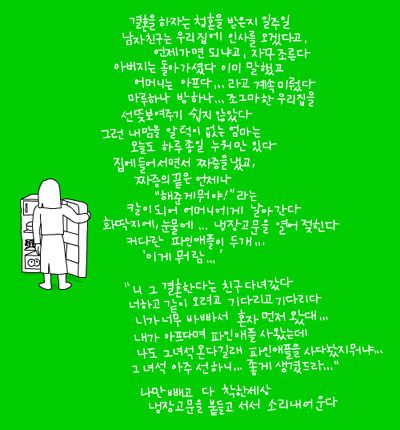 결혼을 하자는 청혼을 받은지 일주일
남자친구는 우리집에 인사를 오겠다고,
언제가면 되냐고, 자꾸 조른다
아버지는 돌아가셨다 이미 말했고
어머니는 아프다... 라고 계속 미뤘다
마루하나 방하나... 조그마한 우리집을
선뜻보여주기 쉽지 않았다
그런 내맘을 알턱이 없는 엄마는
오늘도 하루종일 누워만 있다
집에들어서면서 짜증을 냈고,
짜증의 끝은 언제나
"해준게뭐야!" 라는
칼이되어 어머니에게 날아간다
화딱지에, 눈물에 ... 냉장고문을 열어 젖힌다
커다란 파인애플이 두개...
'이게 뭐람...'
"니 그 결혼한다는 친구 다녀갔다
너하고 같이 오려고 기다리고 기다리다
니가 너무 바빠서 혼자 먼저 왔대...
내가 아프다며 파인애플 사왔는데
나도 그녀석 온다길래 파인애플을 사다놨지뭐냐...
그녀석 아주 선하니... 좋게 생겼드라..."
나만빼고 다 착한세상
냉장고문을 붙들고 서서 소리내어 운다